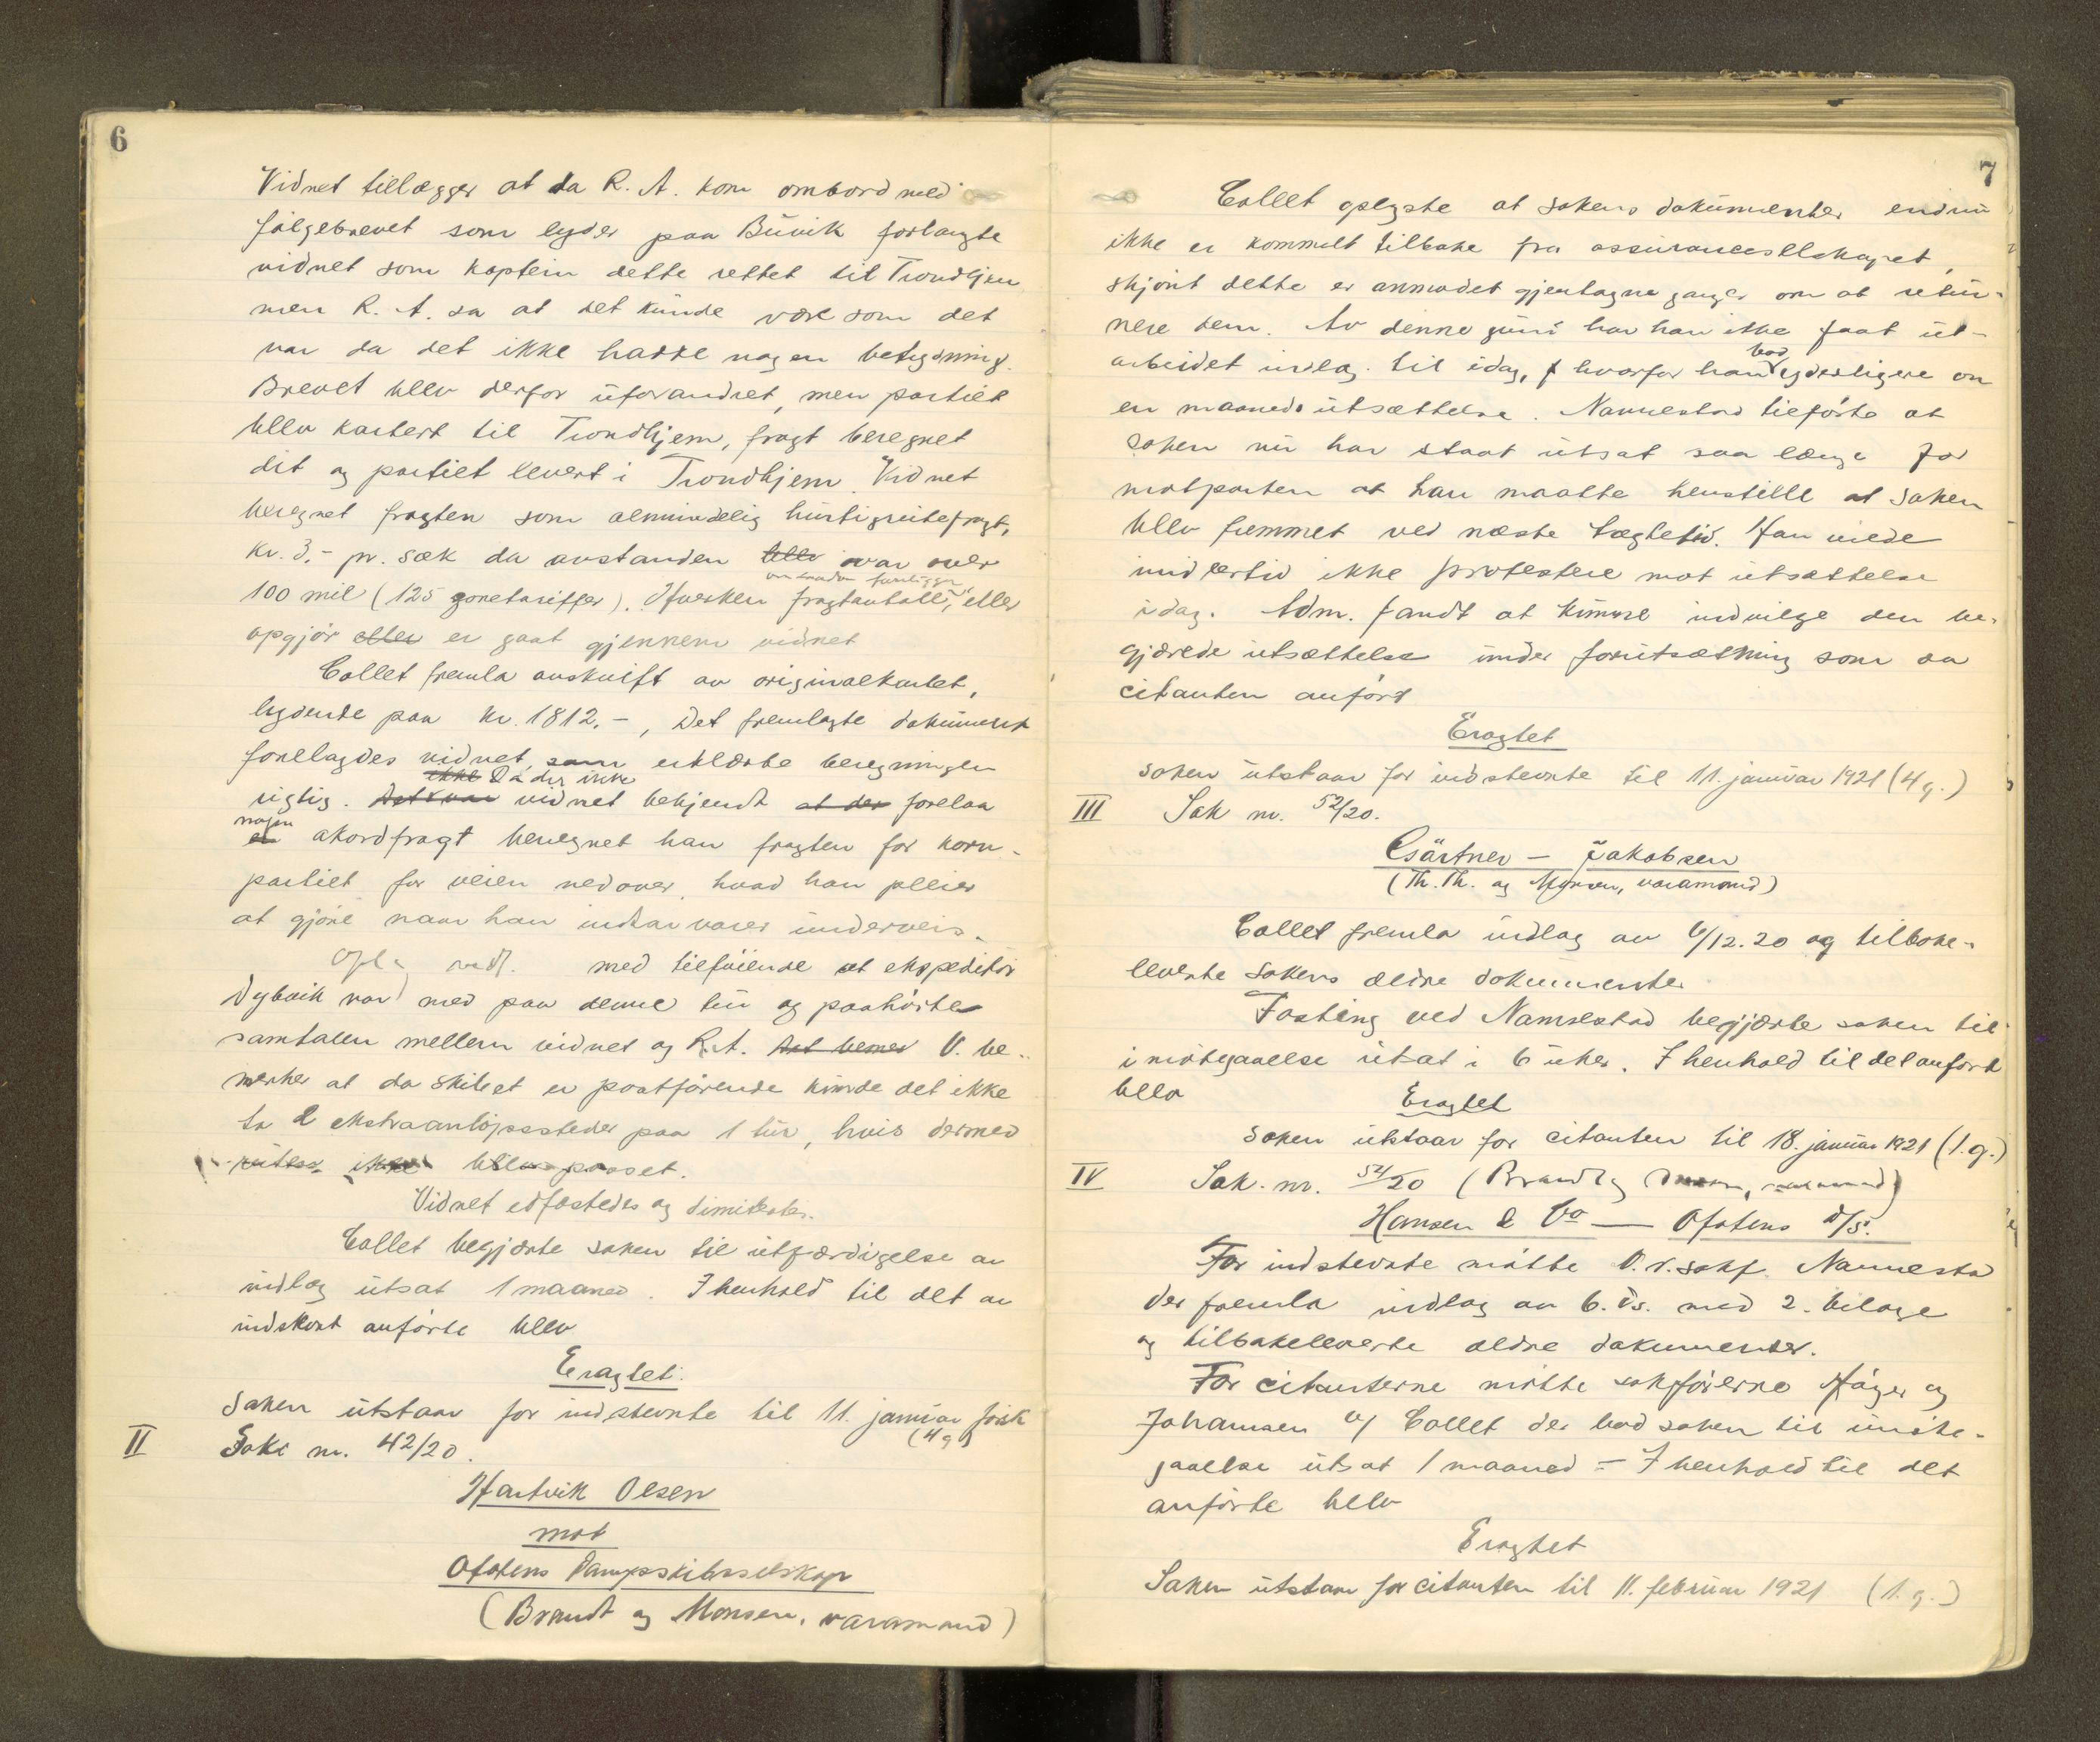 6
Vidnet tillægger at da R. A. kom ombord med
følgebrevet som lyder paa Buvik forlangte
vidnet som kaptein dette rettet til Trondhjem
men R. A. sa at det kunde være som det
var da det ikke hadde nogen betydning.
Brevet blev derfor uforandret, men partiet
blev kartert til Trondhjem, fragt beregnet
dit og partiet levert i Trondhjem. Vidnet
beregnet fragten som almindelig hurtigruitefragt,
kr. 3.- pr. sæk da avstanden blev var over
100 mil (125 sonetariffer). Hverken fragtavtale, eller
opgjør eller er gaat gjennem vidnet
Collet fremla avskrift av originalkartet,
lydende paa kr. 1812.-, Det fremlagte dokument
forelagdes vidnet, som erklærte beregningen
ikke Da der ikke
rigtig. Det var vidnet bekjendt at der forelaa
nogen
en akordfragt beregnet han fragten for korn-
partiet for veien nedover, hvad han pleier
at gjøre naar han indtar varer underveis.
Opl. og vedt. med tilføiende at ekspeditør
Dybvik var med paa denne tur og paahørte
samtalen mellem vidnet og R. A. Det bemer V. be-
merker at da skibet er postførende kunde det ikke
ta 2 ekstraanløpssteder paa 1 tur, hvis dermed
ruten ikke blev passet.
Vidnet edfæstedes og dimitertes.
Collet begjærte saken til utfærdigelse av
indlæg utsat 1 maaned. I henhold til det av
indstevnt anførte blev
Eragtet:
Saken utstaar for indstevnte til 11. januar førstk
(4 g.)
II Sak nr. 42/20.
Hartvik Olsen
mot
Ofotens Dampskibsselskap
(Brandt og Monsen, varamænd)
7
Collet oplyste at sakens dokumenter endnu
ikke er kommet tilbake fra assuranceselskapet,
skjønt dette er anmodet gjentagne ganger om at retur-
nere dem. Av denne grund har han ikke faat ut-
bad
arbeidet indlæg til idag, hvorfor han ydesligere om
en maaneds utsættelse. Nannestad tilførte at
saken nu har staat utsat saa længe for
motparten at han maatte henstille at saken
blev fremmet ved næste tægtetid. Han vilde
imidlertid ikke protestere mot utsættelse
idag. Adm. fandt at kunne indvilge den be-
gjærede utsættelse under forutsætning som av
citanten anført
Eragtet
saken utstaar for indstevnte til 11. januar 1921 (4 g.)
III Sak nr. 52/20.
Gärtner — Jakobsen
(Th. Th. og Monsen, varamænd)
Collet fremla indlæg av 6/12.20 og tilbake-
leverte sakens ældre dokumenter.
Fasting ved Nannestad begjærte saken til
imøtegaaelse utsat i 6 uker. I henhold til det anført
blev
Eragtet
saken utstaar for citanten til 18. januar 1921 (1. g.)
IV Sak. nr. 54/20 (Brandt og
Hansen & Co — Ofotens D/S.
For indstevnte møtte O.r.sakf. Nannestad
der fremla indlæg av 6. ds. med 2. bilage
og tilbakeleverte ældre dokumenter.
For citanterne møtte sakførerne Häger og
Johannsen v/ Collet der bad saken til imøte-
gaaelse utsat 1 maaned - I henhold til det
anførte blev
Eragtet
Saken utstaar for citanten til 11. februar 1921 (1. g.)